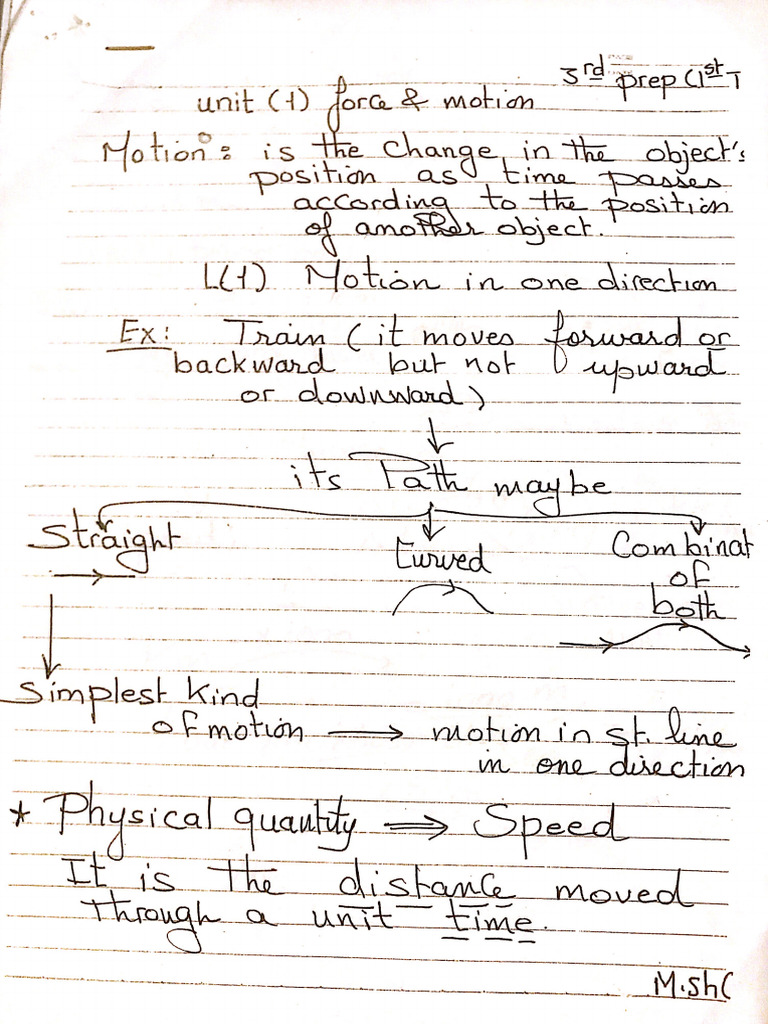 3rd prep (1st T
unit (1) force & motion
Motion: is the change in the object's
position as time passes
according to the position
of another object.
L(1) Motion in one direction
Ex: Train (it moves forward or
backward but not upward
or downward)
its Path maybe
Straight Curved Combinat
of
both
Simplest kind
of motion → motion in st. line
in one direction
* Physical quantity ⇒ Speed
It is the distance moved
through a unit time.
M.sh(